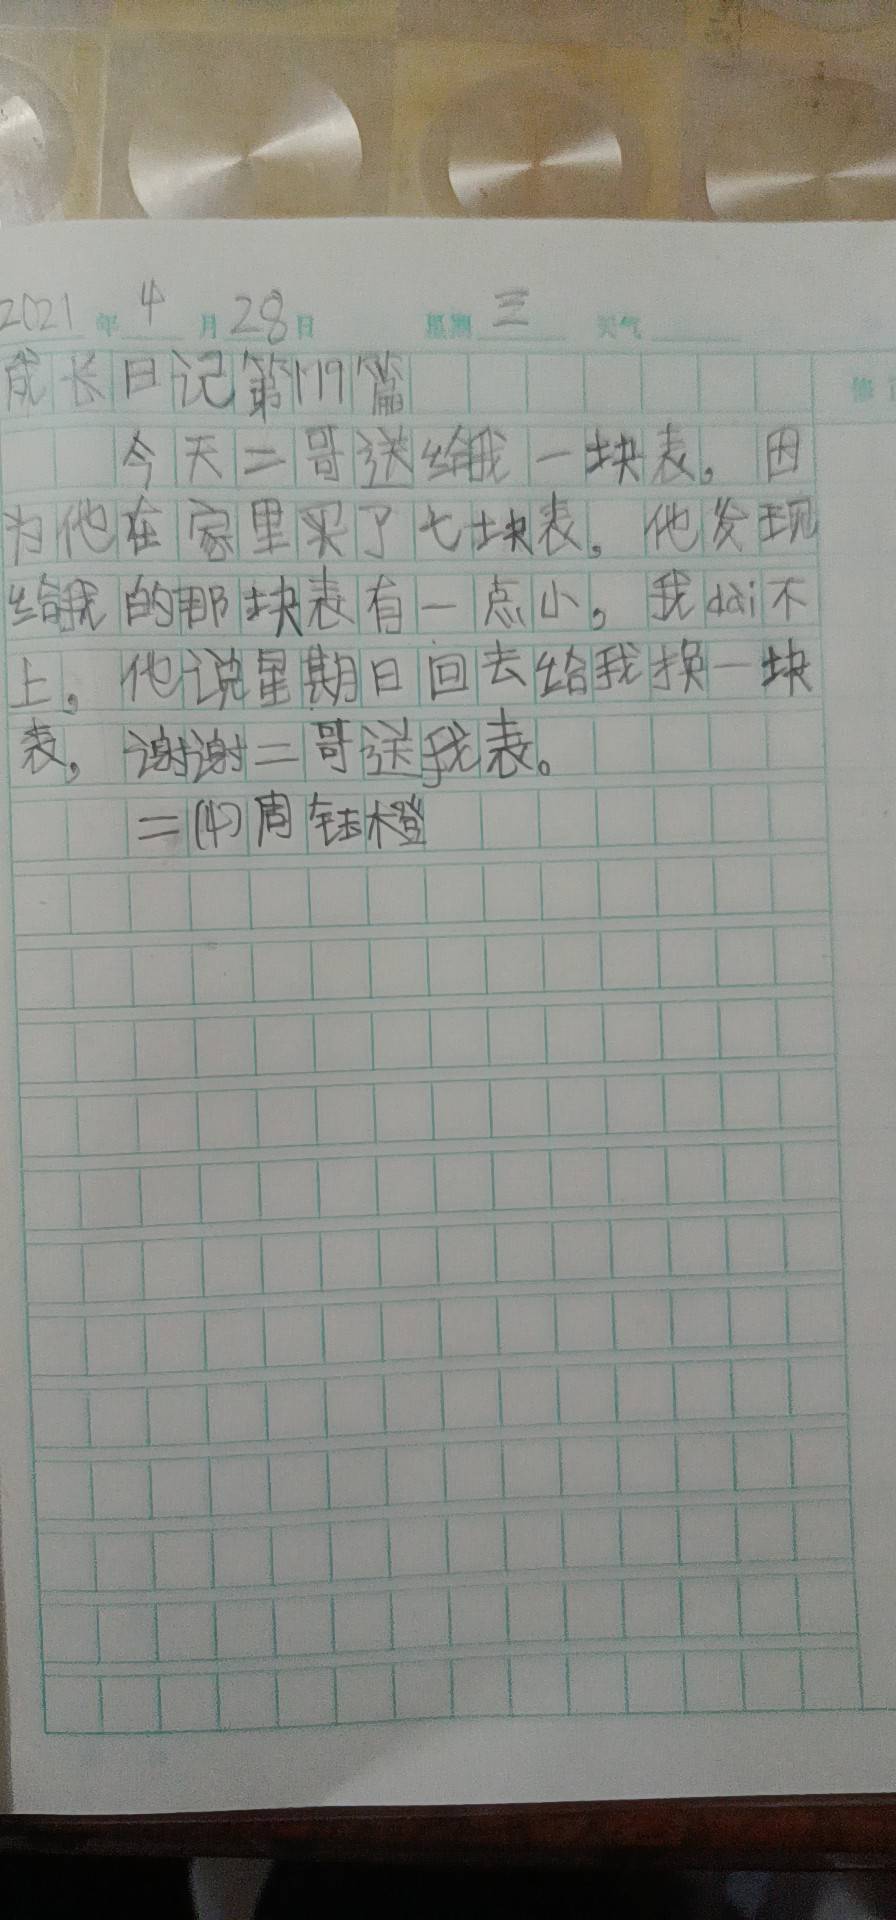 2021年4月28日 星期三 天气
成长日记第179篇
今天二哥送给我一块表。因
为他在家里买了七块表。他发现
给我的那块表有一点小。我dài不
上。他说星期日回去给我换一块
表。谢谢二哥送我表。
二(4)周钰橙